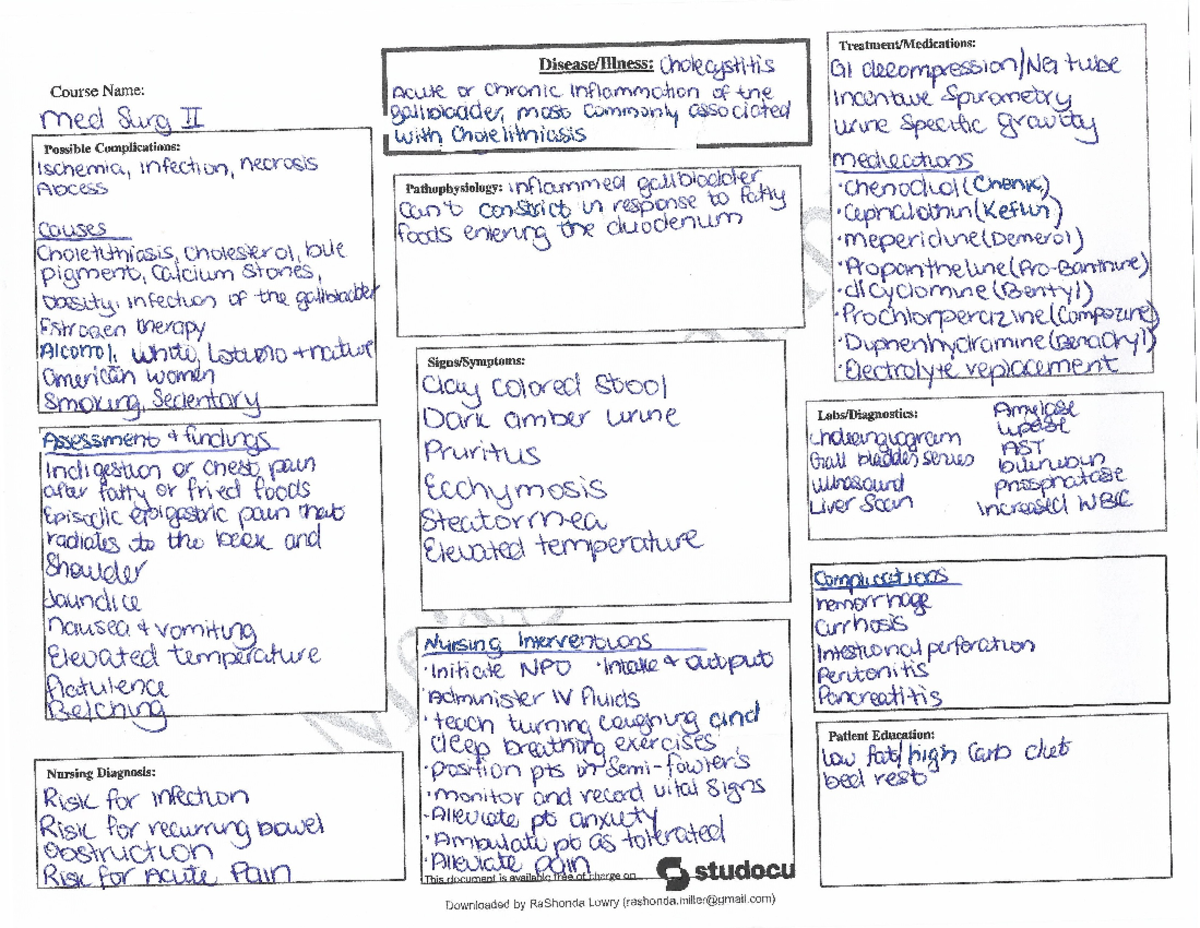 Course Name:
Med Surg II
Disease/Illness: Cholecystitis
Acute or chronic inflammation of the
gallbladder, most commonly associated
with Cholelithiasis
Treatment/Medications:
GI decompression/NG tube
Incentive Spirometry
Urine Specific gravity
Medications
·Chenodiol (Chenix)
·Cephalothin (Keflin)
·Meperidine (Demerol)
·Propantheline (Pro-Banthine)
·dicyclomine (Bentyl)
·Prochlorperazine (Compozine)
·Diphenhydramine (Benadryl)
·Electrolyte replacement
Possible Complications:
Ischemia, infection, necrosis
Abscess
Causes
Cholelithiasis, Cholesterol, bile
pigment, Calcium Stones,
Obesity, infection of the gallbladder
Estrogen therapy
Alcohol, White, Latino + native
American women
Smoking, Sedentary
Pathophysiology: inflammed gallbladder
Can't constrict in response to fatty
foods entering the duodenum
Signs/Symptoms:
Clay colored Stool
Dark amber urine
Pruritus
Ecchymosis
Steatorrhea
Elevated temperature
Labs/Diagnostics:
cholangiogram
Gall bladder series
ultrasound
Liver Scan
Amylase
Lipase
AST
bilirubin
phosphatase
increased WBC
Assessment + findings
Indigestion or chest pain
after fatty or fried foods
Episodic epigastric pain that
radiates to the back and
Shoulder
Jaundice
nausea + vomiting
Elevated temperature
Flatulence
Belching
Complications
hemorrhage
cirrhosis
Intestional perforation
Peritonitis
Pancreatitis
Nursing Interventions
·Initiate NPO ·Intake + output
·Administer IV fluids
·teach turning coughing and
deep breathing exercises
·position pts in Semi-fowlers
·monitor and record vital signs
·Alleviate pt anxiety
·Ambulate pt as tolerated
·Alleviate pain
Nursing Diagnosis:
Risk for infection
Risk for recurring bowel
Obstruction
Risk for Acute Pain
Patient Education:
Low fat/high Carb diet
bed rest
This document is available free of charge on
studocu
Downloaded by RaShonda Lowry (rashonda.miller@gmail.com)